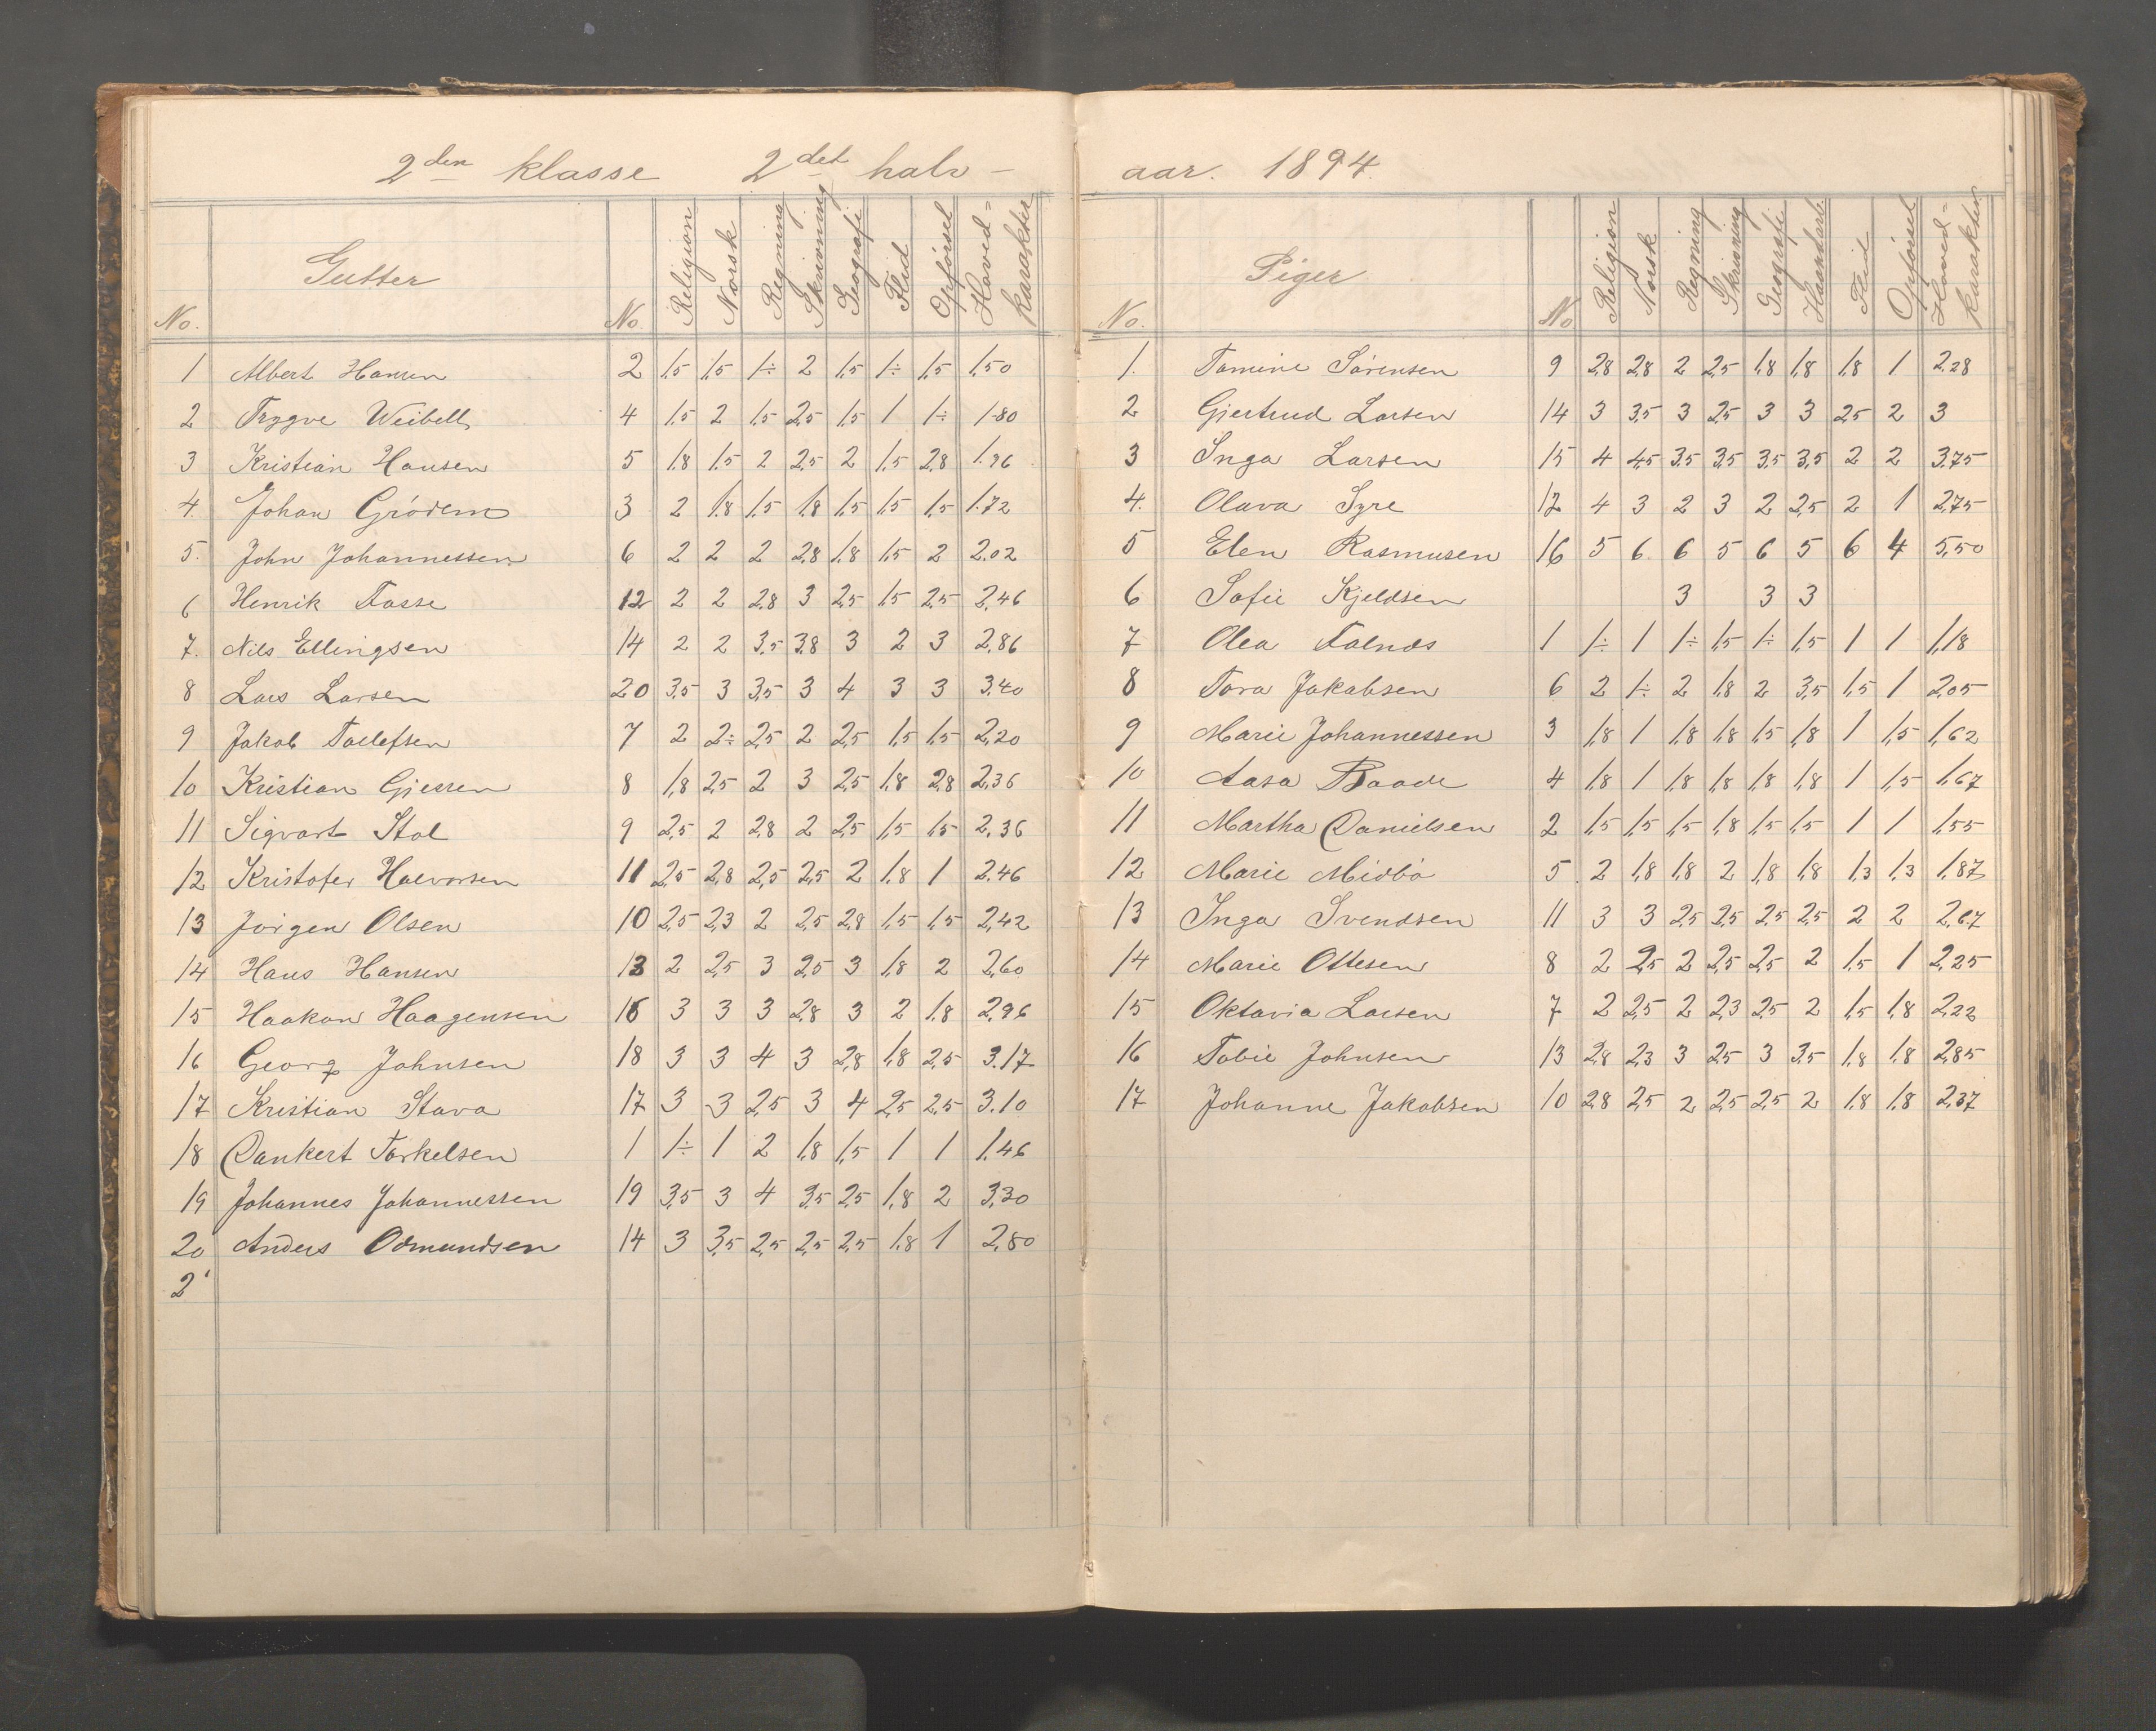 2den klasse 2det halv-
No. Gutter No. Religion Norsk Regning Skrivning Geografi Flid Opførsel Hoved=karakter
1 Albert Hansen 2 1,5 1,5 1÷ 2 1,5 1÷ 1,5 1,50
2 Trygve Weibell 4 1,5 2 1,5 2,5 1,5 1 1÷ 1.80
3 Kristian Hansen 5 1,8 1,5 2 2,5 2 1,5 2,8 1.96
4. Johan Grødem 3 2 1,8 1,5 1,8 1,5 1,5 1,5 1.72
5. John Johannessen 6 2 2 2 2,8 1,8 1,5 2 2.02
6 Henrik Fosse 12 2 2 2,8 3 2,5 1,5 2,5 2,46
7. Nils Ellingsen 14 2 2 3,5 3,8 3 2 3 2,86
8 Lars Larsen 20 3,5 3 3,5 3 4 3 3 3,40
9 Jakob Tollefsen 7 2 2÷ 2,5 2 2,5 1,5 1,5 2,20
10 Kristian Gjessen 8 1,8 2,5 2 3 2,5 1,8 2,8 2,36
11 Sigvart Stol 9 2,5 2 2,8 2 2,5 1,5 1,5 2,36
12 Kristofer Halvorsen 11 2,5 2,8 2,5 2,5 2 1,8 1 2.46
13 Jørgen Olsen 10 2,5 2,3 2 2,5 2,8 1,5 1,5 2,42
14 Hans Hansen 13 2 2,5 3 2,5 3 1,8 2 2,60
15 Haakon Haagensen 16 3 3 3 2,8 3 2 1,8 2,96
16 Georg Johnsen 18 3 3 4 3 2,8 1,8 2,5 3.17
17 Kristian Stava 17 3 3 2,5 3 4 2,5 2,5 3.10
18 Dankert Torkelsen 1 1÷ 1 2 1,8 1,5 1 1 1,46
19 Johannes Johannessen 19 3,5 3 4 3,5 2,5 1,8 2 3,30
20 Anders Odmundsen 14 3 3,5 2,5 2,5 2,5 1,8 1 2,80
2'
aar. 1894.
No. Piger No Religion Norsk Regning Skrivning Geografi Haandarb. Flid Opførsel Hoved=karakter
1. Tomine Sørensen 9 2,8 2,8 2 2,5 1,8 1,8 1,8 1 2,28
2 Gjertrud Larsen 14 3 3,5 3 2,5 3 3 2,5 2 3
3 Inga Larsen 15 4 4,5 3,5 3,5 3,5 3,5 2 2 3,75
4. Olava Syre 12 4 3 2 3 2 2,5 2 1 2,75
5 Elen Rasmusen 16 5 6 6 5 6 5 6 4 5,50
6 Sofie Kjeldsen 3 3 3
7 Olea Falnes 1 1÷ 1 1÷ 1,5 1÷ 1,5 1 1 1,18
8 Tora Jakobsen 6 2 1÷ 2 1,8 2 3,5 1,5 1 2,05
9 Marie Johannessen 3 1,8 1 1,8 1,8 1,5 1,8 1 1,5 1,62
10 Aasa Baade 4 1,8 1 1,8 1,8 1,8 1,8 1 1,5 1,67
11 Martha Danielsen 2 1,5 1,5 1,5 1,8 1,5 1,5 1 1 1,55
12 Marie Midbø 5 2 1,8 1,8 2 1,8 1,8 1,3 1,3 1,87
13 Inga Svendsen 11 3 3 2,5 2,5 2,5 2,5 2 2 2,67
14 Marie Ottesen 8 2 2,5 2 2,5 2,5 2 1,5 1 2,25
15 Oktavia Larsen 7 2 2,5 2 2,3 2,5 2 1,5 1,8 2,22
16 Tobie Johnsen 13 2,8 2,3 3 2,5 3 3,5 1,8 1,8 2,85
17 Johanne Jakobsen 10 2,8 2,5 2 2,5 2,5 2 1,8 1,8 2,37